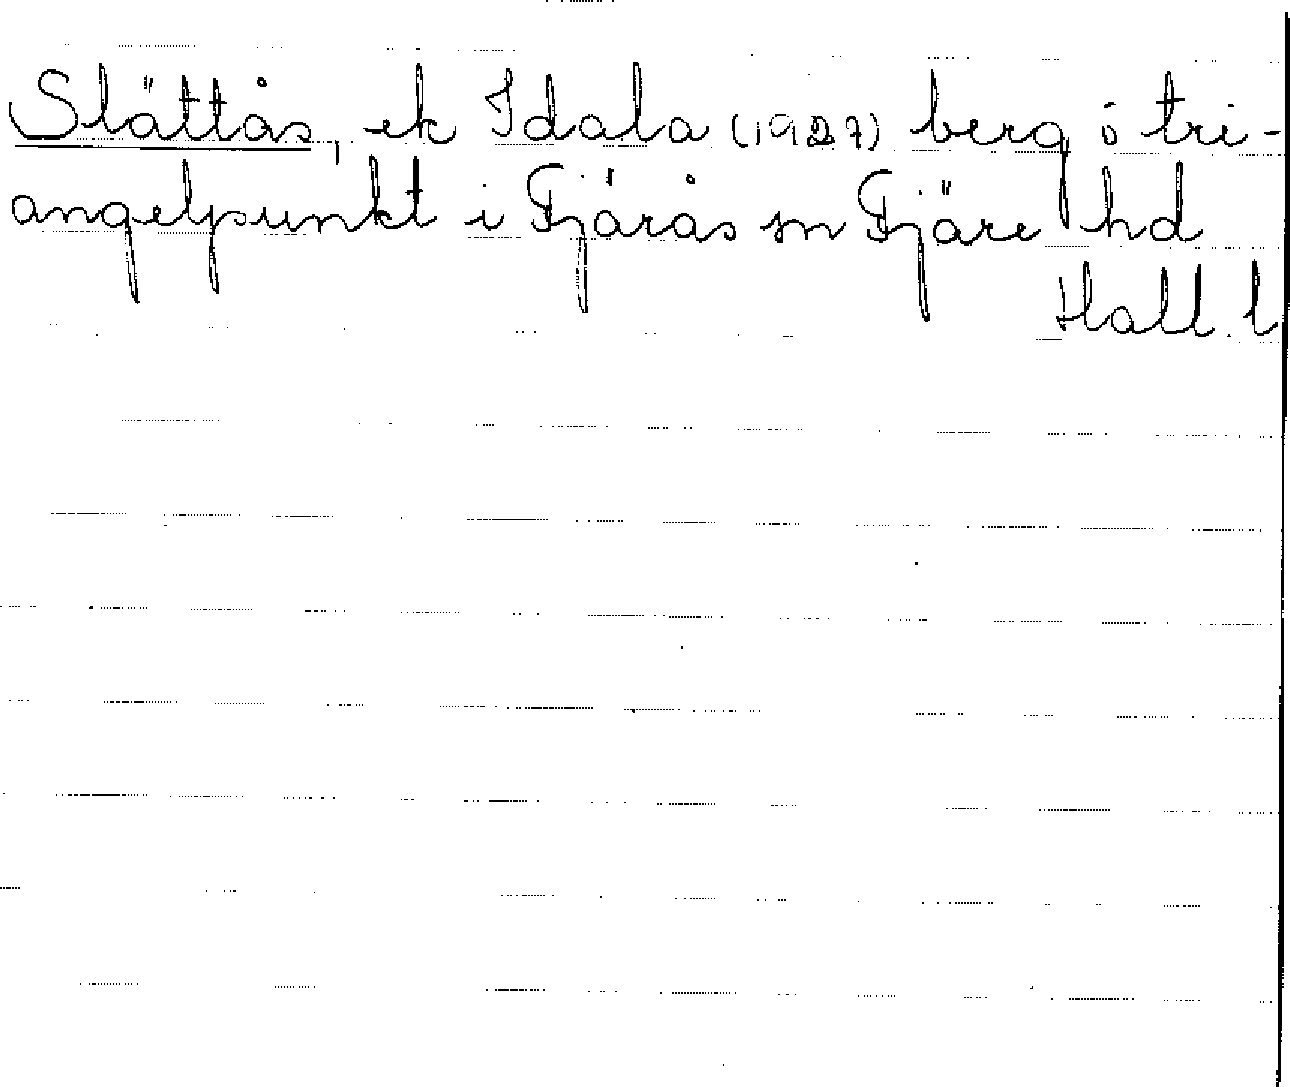 Slättås, ek Idala (1927) berg ö tri-
angelpunkt i Fjärås sn Fjäre hd
Hall. l